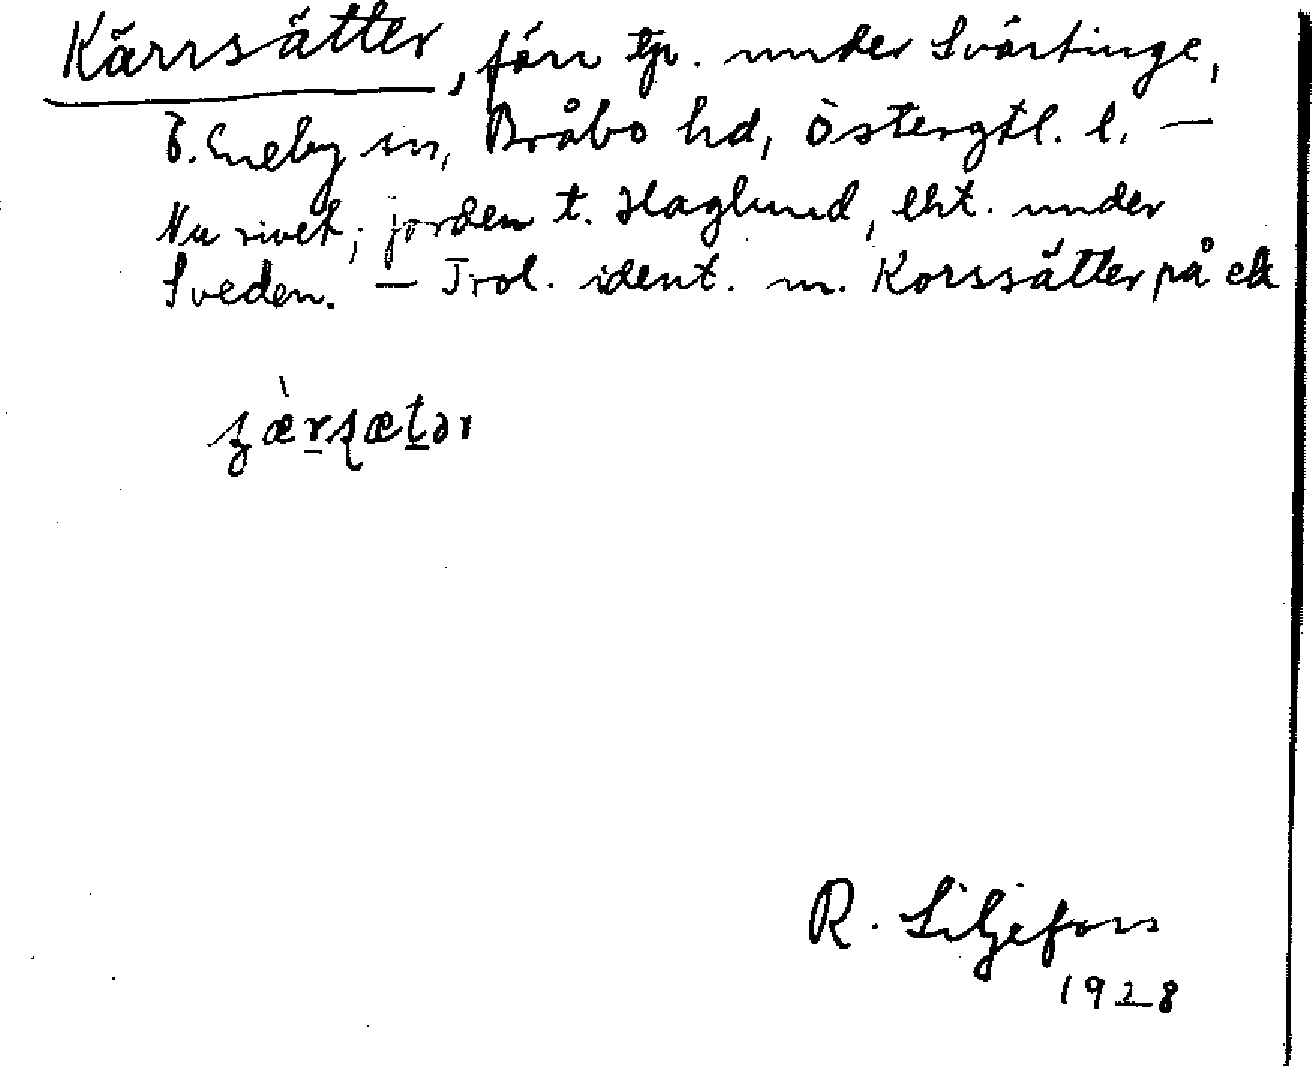 Kärrsätter, förr tp. under Svärtinge,
Ö. Eneby sn, Bråbo hd, Östergtl. l. —
Nu rivet; jorden t. Haglund, lht. under
Sveden. — Trol. ident. m. Korssätter på ek
R. Liljefors
1928